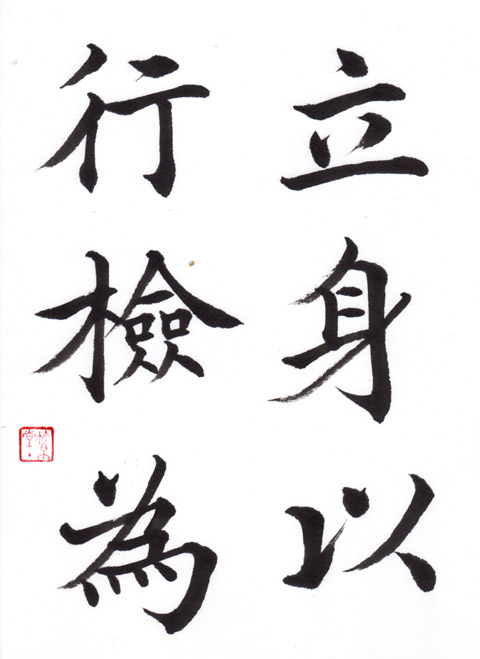 立身以
行檢為